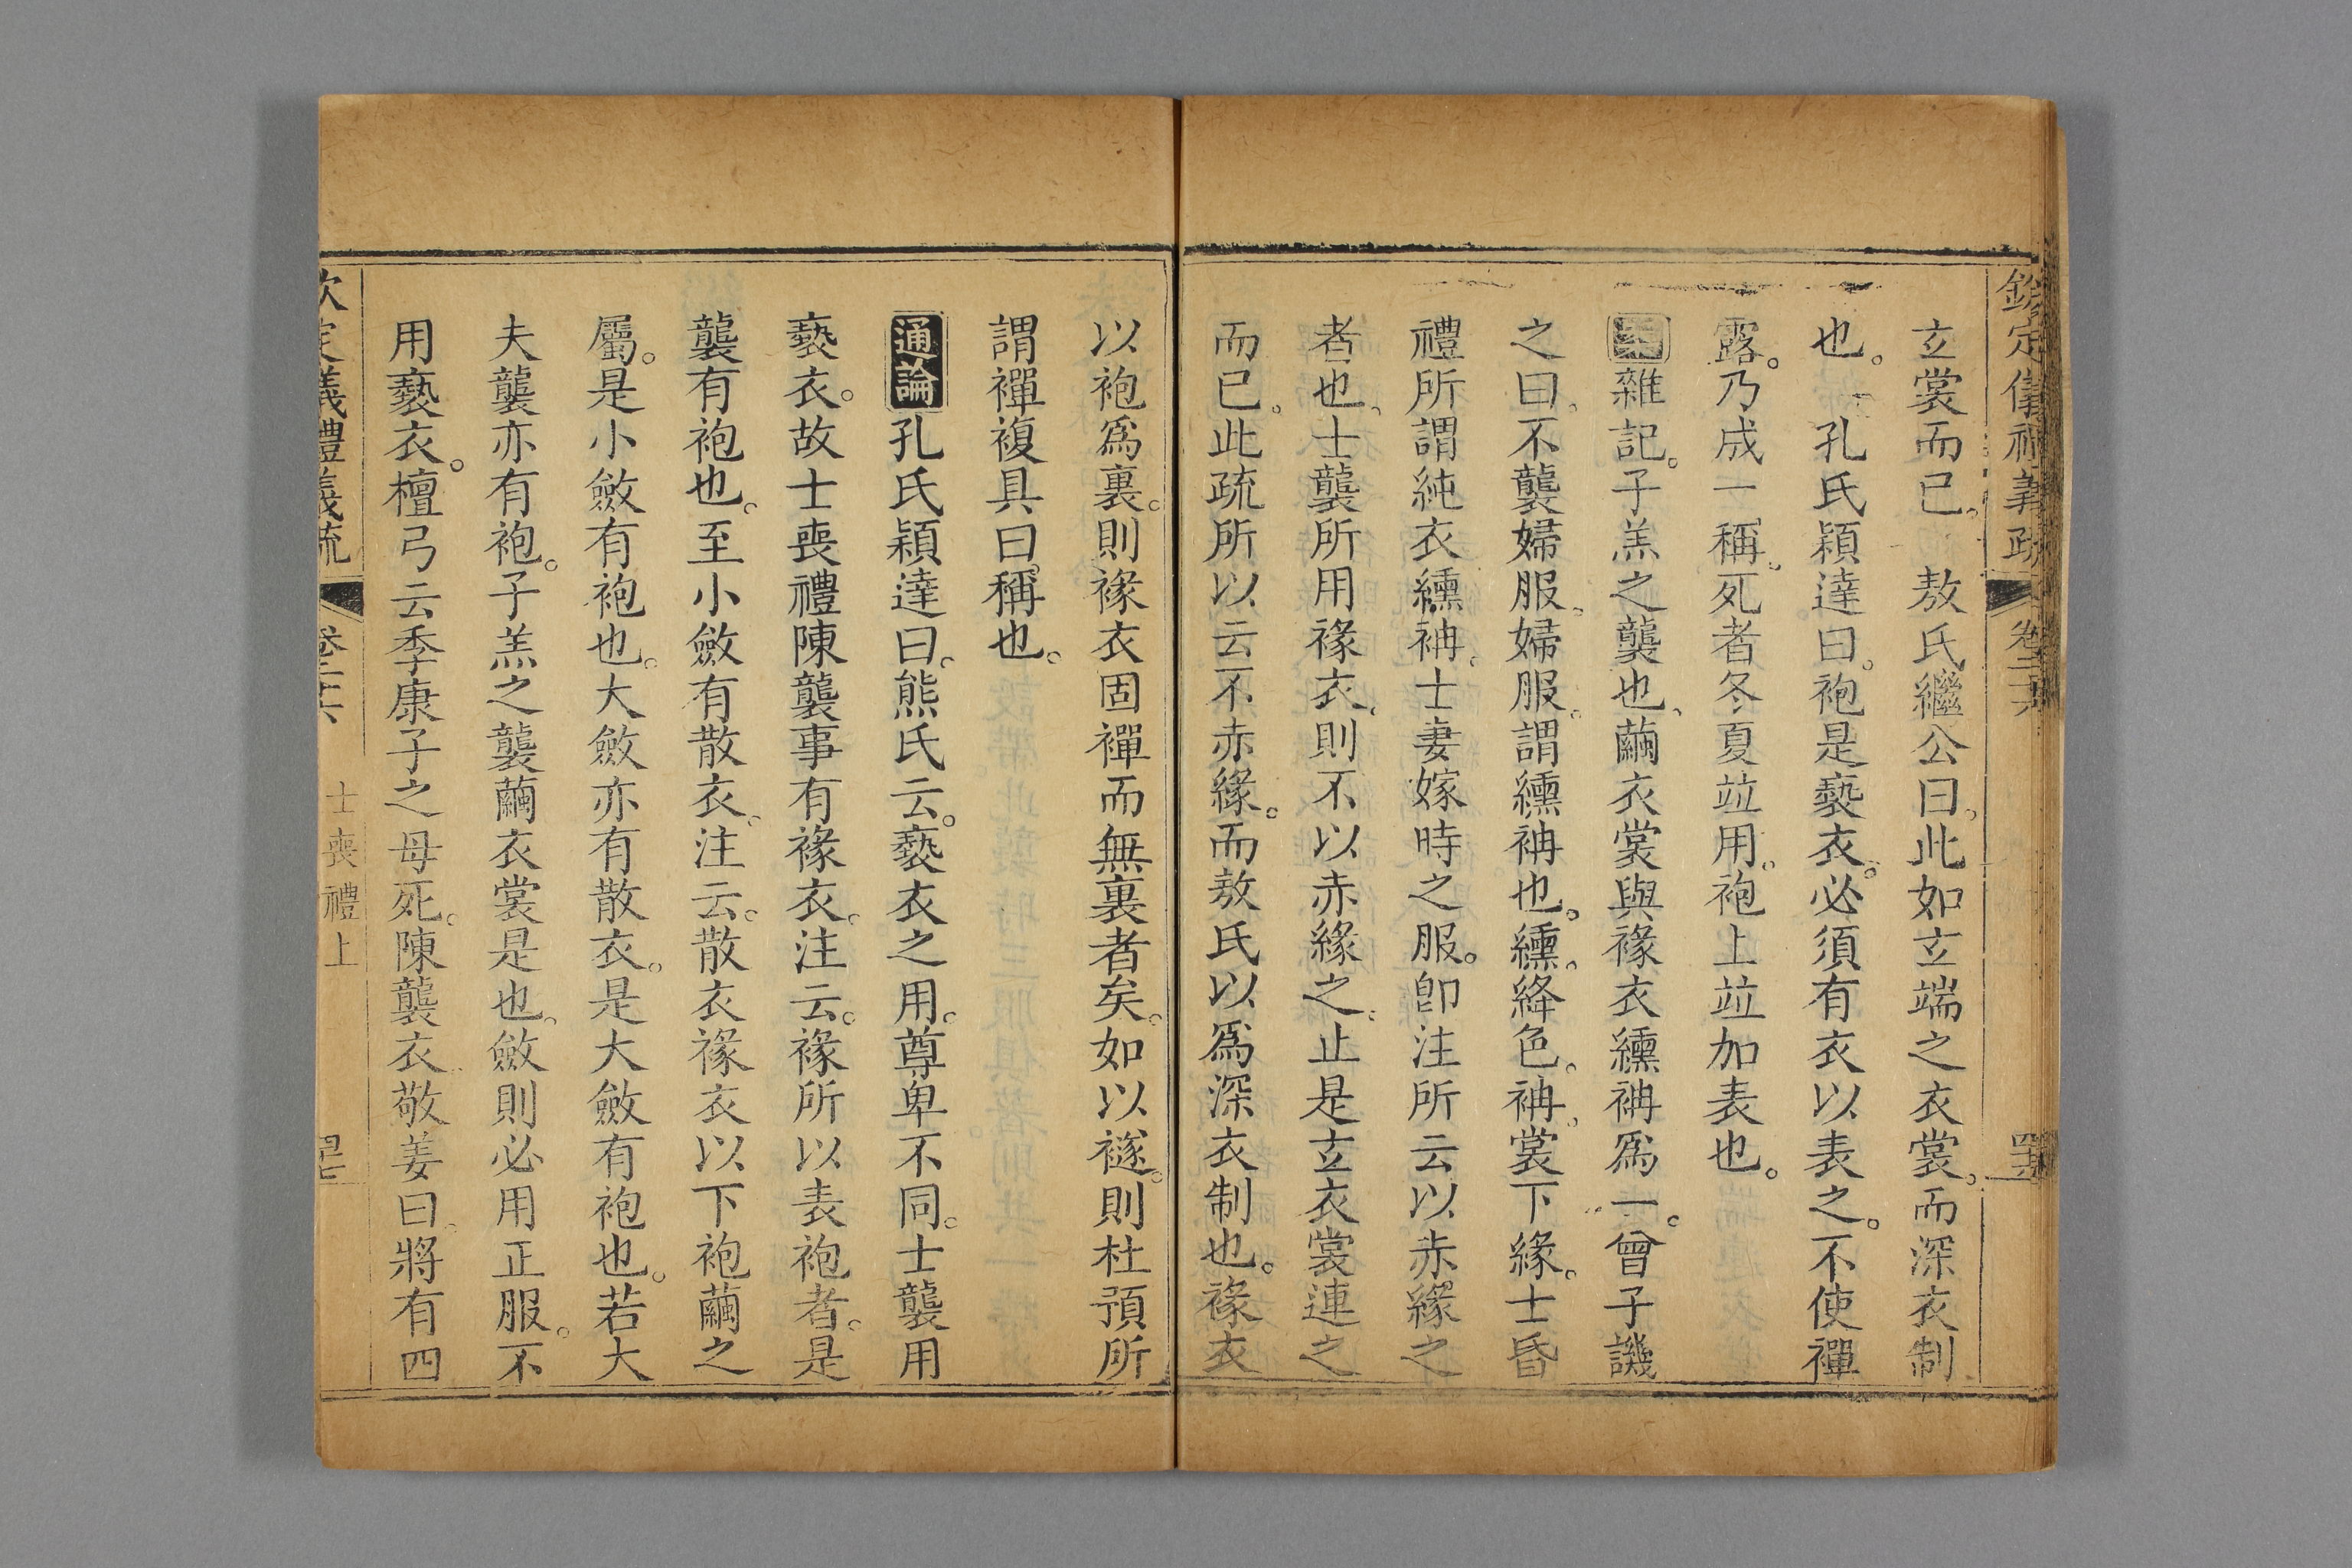 欽定儀禮義疏 卷二十六
立裳而已。 敖氏繼公曰。此如立端之衣裳。而深衣制
也。 孔氏穎達曰。袍是褻衣。必須有衣以表之。不使襌
露。乃成一稱。死者冬夏竝用。袍上竝加表也。
雜記。子羔之襲也。繭衣裳與褖衣纁袡爲一。曾子譏
之曰。不襲婦服。婦服。謂纁袡也。纁。絳色。袡。裳下緣。士昏
禮所謂純衣纁袡。士妻嫁時之服。卽注所云以赤緣之
者也。士襲所用褖衣。則不以赤緣之。止是玄衣裳連之
而已。此疏所以云不赤緣。而敖氏以爲深衣制也。褖衣
以袍爲裏。則褖衣固襌而無裏者矣。如以襚。則杜預所
謂襌複具曰稱也。
通論 孔氏穎達曰。熊氏云。褻衣之用。尊卑不同。士襲用
褻衣。故士喪禮陳襲事有褖衣。注云。褖所以表袍者。是
襲有袍也。至小斂有散衣。注云。散衣褖衣以下袍繭之
屬。是小斂有袍也。大斂亦有散衣。是大斂有袍也。若大
夫襲亦有袍。子羔之襲繭衣裳是也。斂則必用正服。不
用褻衣。檀弓云季康子之母死。陳襲衣敬姜曰。將有四
欽定儀禮義疏 卷二十六 士喪禮上